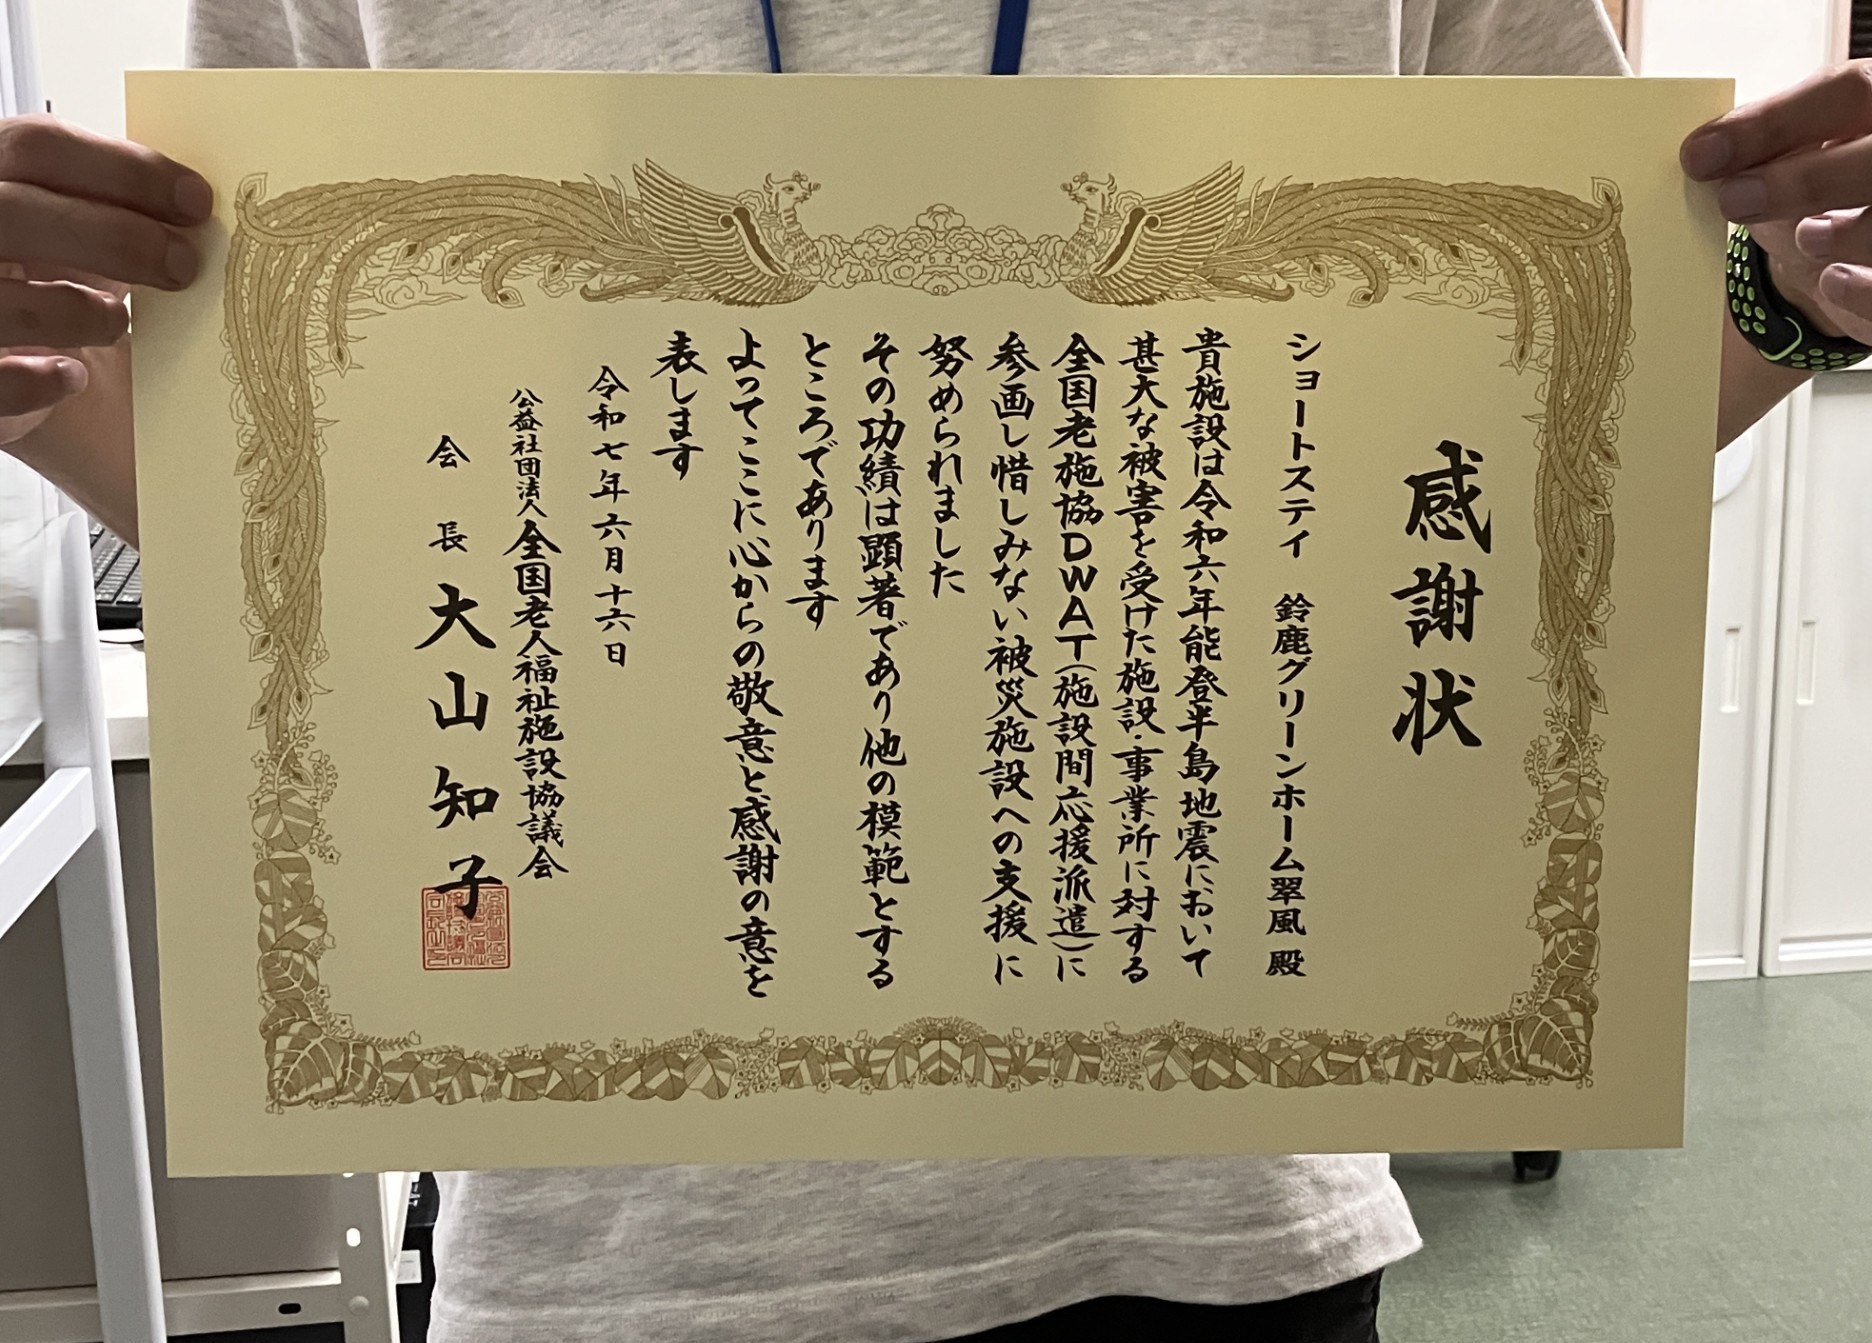 感謝状
ショートステイ 鈴鹿グリーンホーム翠風 殿
貴施設は令和六年能登半島地震において
甚大な被害を受けた施設・事業所に対する
全国老施協DWAT(施設間応援派遣)に
参画し惜しみない被災施設への支援に
努められました
その功績は顕著であり他の模範とする
ところであります
よってここに心からの敬意と感謝の意を
表します
令和七年六月十六日
公益社団法人全国老人福祉施設協議会
会長 大山知子